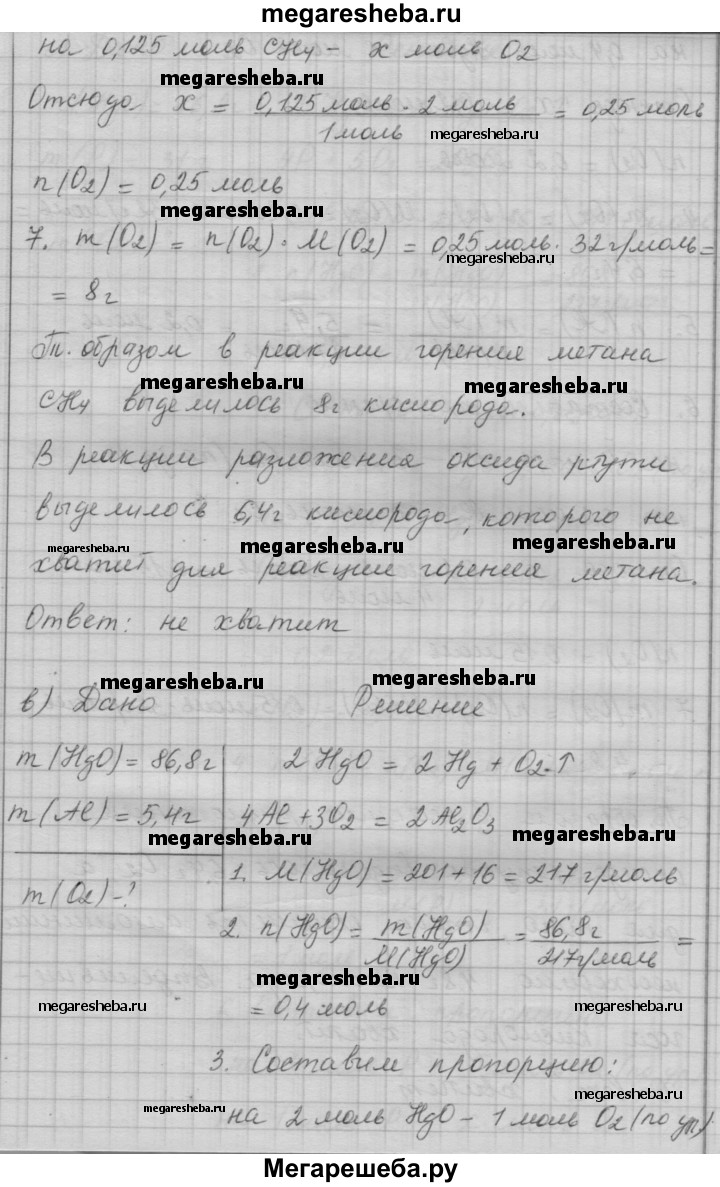 megaresheba.ru
на 0,125 моль CH4 - x моль O2
megaresheba.ru
Отсюда x = 0,125 моль · 2 моль / 1 моль = 0,25 моль
megaresheba.ru
n(O2) = 0,25 моль
megaresheba.ru
7. m(O2) = n(O2) · M(O2) = 0,25 моль · 32 г/моль =
megaresheba.ru
= 8 г
Т. образом в реакции горения метана
megaresheba.ru megaresheba.ru
CH4 выделилось 8г кислорода.
В реакции разложения оксида ртути
выделилось 6,4г кислорода, которого не
megaresheba.ru megaresheba.ru megaresheba.ru
хватит для реакции горения метана.
Ответ: не хватит
megaresheba.ru megaresheba.ru
в) Дано Решение
m(HgO) = 86,8г 2HgO = 2Hg + O2↑
m(Al) = 5,4г 4Al + 3O2 = 2Al2O3
megaresheba.ru megaresheba.ru
m(O2) - ? 1. M(HgO) = 201 + 16 = 217 г/моль
2. n(HgO) = m(HgO) / M(HgO) = 86,8г / 217г/моль =
megaresheba.ru
megaresheba.ru = 0,4 моль megaresheba.ru
3. Составим пропорцию:
megaresheba.ru megaresheba.ru
на 2 моль HgO - 1 моль O2 (по ур.)
Мегарешеба.ру